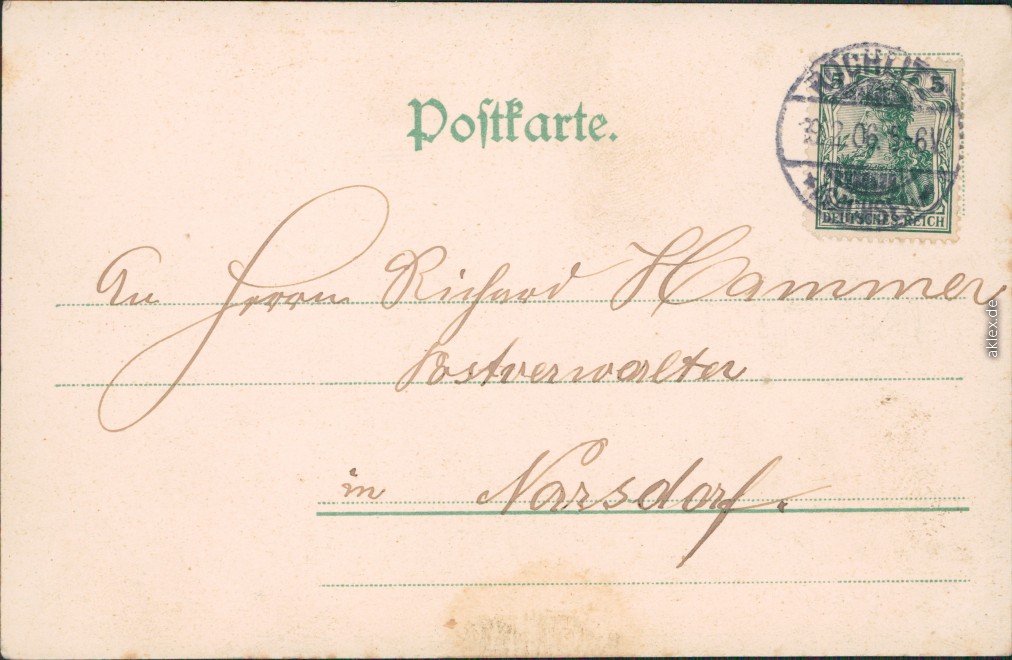 Postkarte.
5 5
DEUTSCHES REICH
An Herrn Richard Hammer
Postverwalter
in Narsdorf.
aklex.de